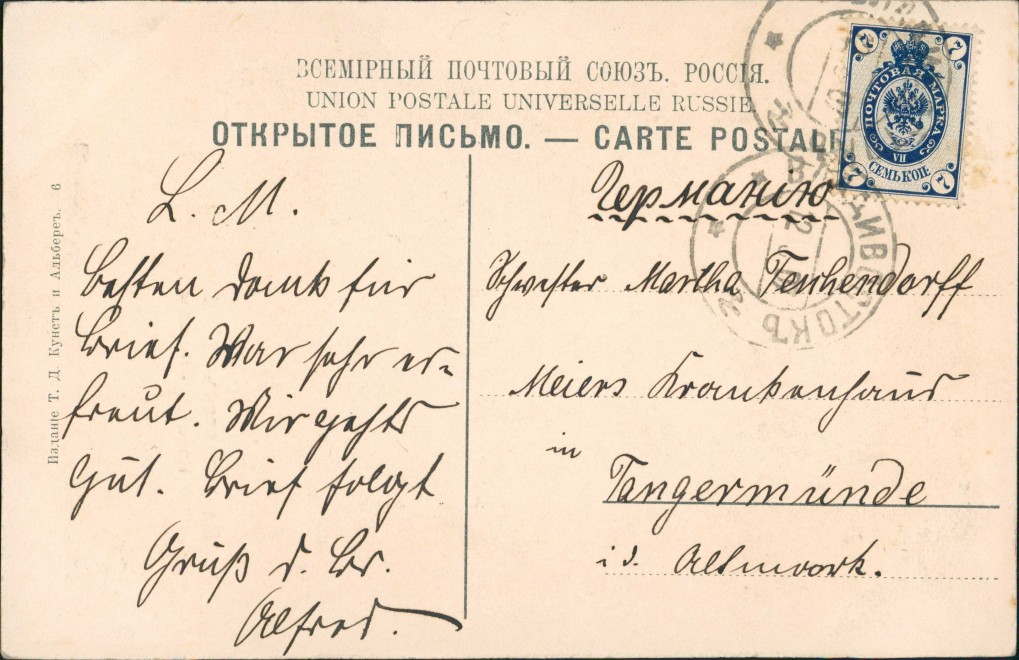 ВСЕМІРНЫЙ ПОЧТОВЫЙ СОЮЗЪ. РОССІЯ.
UNION POSTALE UNIVERSELLE RUSSIE.
ОТКРЫТОЕ ПИСЬМО. — CARTE POSTALE
7 7
ПОЧТОВАЯ МАРКА
VII
СЕМЬ КОП.
7 7
ВЛАДИВОСТОКЪ
Изданіе Т. Д. Кунстъ и Альберсъ. 6
L. M.
Besten Dank für
Brief. War sehr er=
freut. Mir gehts
gut. Brief folgt
Gruß d. Br.
Alfred.
Германію
Schwester Martha Teschendorff
Meiers Krankenhaus
in
Tangermünde
i. d. Altmark.